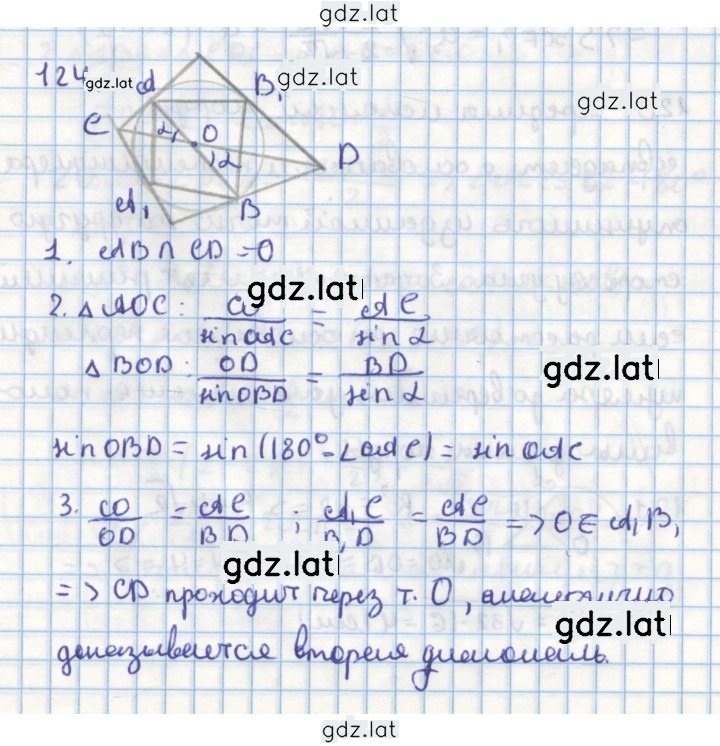 gdz.lat
124 gdz.lat A B₁ gdz.lat
gdz.lat
C α O
1α D
A₁ B
1. AB ∩ CD = O
gdz.lat
2. △AOC: CO/sin OAC = AC/sin α
△BOD: OD/sin OBD = BD/sin α
gdz.lat
sin OBD = sin (180° - ∠OAC) = sin OAC
3. CO/OD = AC/BD ; A₁C/B₁D = AC/BD => O ∈ A₁B₁
gdz.lat
=> CD проходит через т. O, аналогично
gdz.lat
доказывается вторая диагональ.
gdz.lat